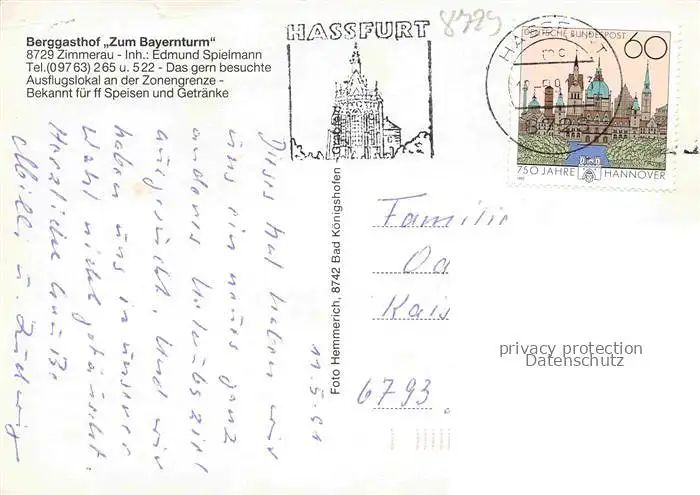 Berggasthof „Zum Bayernturm"
8729 Zimmerau - Inh.: Edmund Spielmann
Tel.(09763) 265 u. 522 - Das gern besuchte
Ausflugslokal an der Zonengrenze -
Bekannt für ff Speisen und Getränke
HASSFURT
8729
DEUTSCHE BUNDESPOST
60
750 JAHRE HANNOVER
Dieses mal haben wir
uns ein neues ganz
anderes Urlaubsziel
ausgesucht. Und wir
haben uns in unserer
Wahl nicht getäuscht.
Herzliche Grüße
Milli u. Ludwig
11.5.91
Foto Hemmerich, 8742 Bad Königshofen
Familie
Da
Kais
6793
privacy protection
Datenschutz